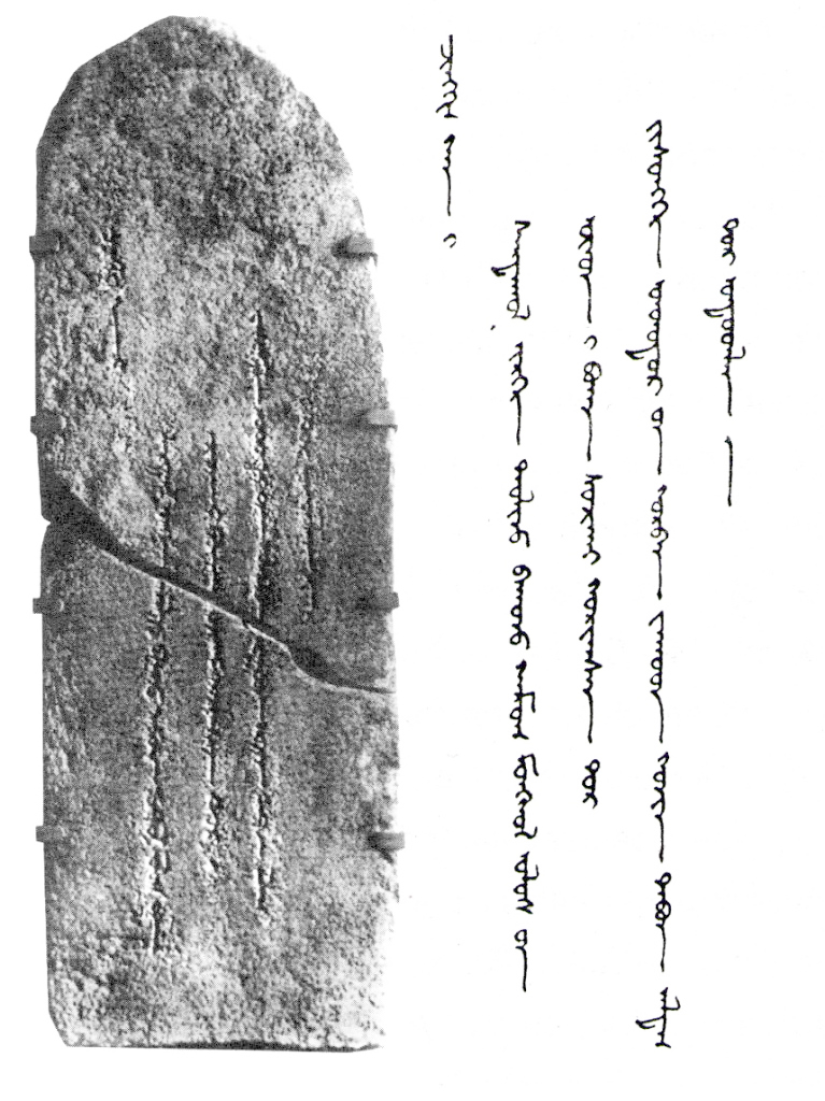 ᠴᠢᠩᠭᠢᠰ ᠬᠠᠨ ᠢ
ᠰᠠᠷᠲᠠᠭᠤᠯ ᠢᠷᠭᠡ ᠳᠠᠭᠤᠯᠢᠵᠤ ᠪᠠᠭᠤᠵᠤ ᠬᠠᠮᠤᠭ ᠮᠣᠩᠭᠣᠯ ᠤᠯᠤᠰ ᠤᠨ
ᠨᠣᠶᠠᠳ ᠢ ᠪᠤᠬᠠ ᠬᠤᠷᠢᠭᠰᠠᠨ ᠳᠤᠷ
ᠶᠢᠰᠦᠩᠭᠡ ᠣᠨᠲᠤᠳᠤᠷᠤᠨ ᠭᠤᠷᠪᠠᠨ ᠵᠠᠭᠤᠳ ᠭᠤᠴᠢᠨ ᠲᠠᠪᠤᠨ ᠠᠯᠳᠠᠰ
ᠲᠤᠷ ᠣᠨᠲᠤᠳᠤᠯᠠᠭ᠎ᠠ